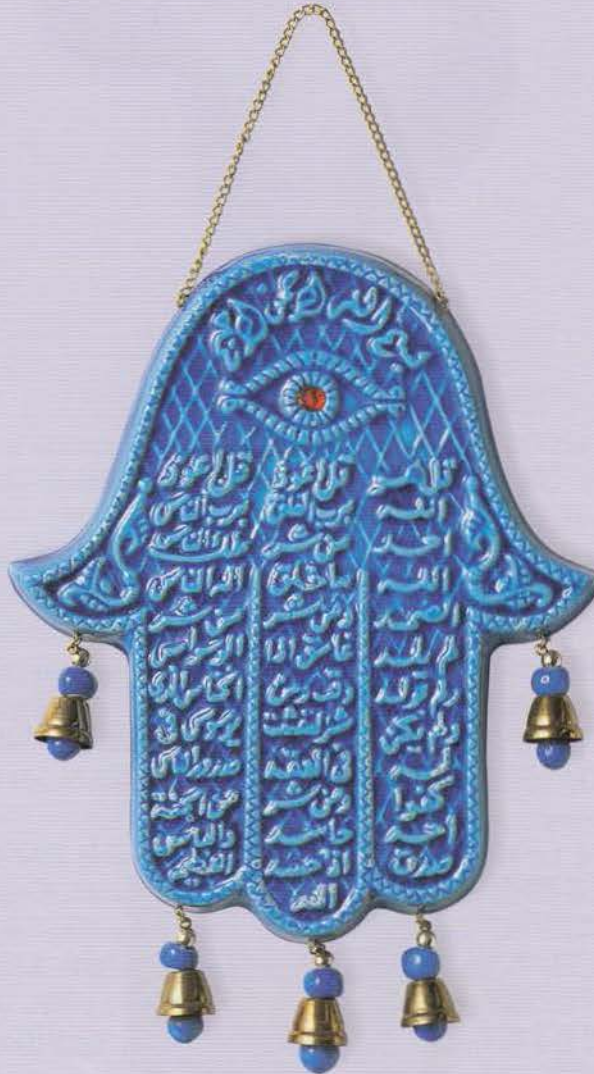 بسم الله الرحمن الرحيم
قل هو
الله
احد
الله
الصمد
لم يلد
ولم يولد
ولم يكن
له
كفوا
احد
صدق
قل اعوذ
برب الفلق
من شر
ما خلق
ومن شر
غاسق اذا
وقب ومن
شر النفثت
في العقد
ومن شر
حاسد
اذا حسد
الله
قل اعوذ
برب الناس
ملك الناس
اله الناس
من شر
الوسواس
الخناس الذي
يوسوس في
صدور الناس
من الجنة
والناس
العظيم